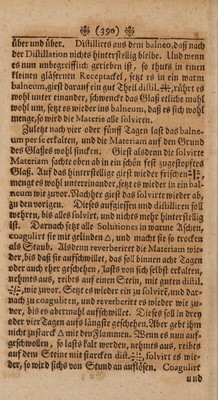 (390)
über und über. Distillirts aus dem balneo, daß nach
der Distillation nichts hinterstellig bleibe. Und wenn
es nun unbegreifflich gerieben ist, so thuts in einen
kleinen gläsernen Receptackel, setzt es in ein warm
balneum, gießt darauf ein gut Theil distil. rührt es
wohl unter einander, schwenckt das Glaß etliche mahl
wohl um, setzt es wieder ins balneum, daß es sich wohl
menge, so wird die Materie alle solviren.
Zuletzt nach vier oder fünff Tagen last das balne-
um per se erkalten, und die Materiam auf den Grund
des Glases wohl sincken. Gießt alsdenn die solvirte
Materiam sachte oben ab in ein schön fest zugestopftes
Glaß. Auf das hinterstellige gießt wieder frischen
mengts es wohl untereinander, setzt es wieder in ein bal-
neum wie zuvor. Darnach gießt das solvirte wieder ab,
zu den vorigen. Dieses aufgiessen und distilliren soll
mehren, bis alles solvirt, und nichts mehr hinterstellig
ist. Darnach setzt alle Solutiones in warme Aschen,
coagulirt sie mit gelinden △, und macht sie so trocken
als Staub. Alsdenn reverberirt die Materiam wie-
der, bis daß sie aufschwillet, das soll binnen acht Tagen
oder auch eher geschehen, lasts von sich selbst erkalten,
nehmts aus, reibts auf einen Stein, mit guten distil.
wie zuvor. Setzt es wieder ein zu solvirē, und dar-
nach zu coaguliren, und reverberirt es wieder wie zu-
vor, bis es abermahl aufschwillet. Dieses soll in drey
oder vier Tagen aufs längste geschehen. Aber gebt ihm
nicht zustarck △ mit den Flammen. Wenn es nun auf-
geschwollen, so lasts kalt werden, nehmts aus, reibts
auf dem Steine mit starcken dist. solvirt es wie-
der, so wird sichs von Stund an auflösen, Coagulirt
und